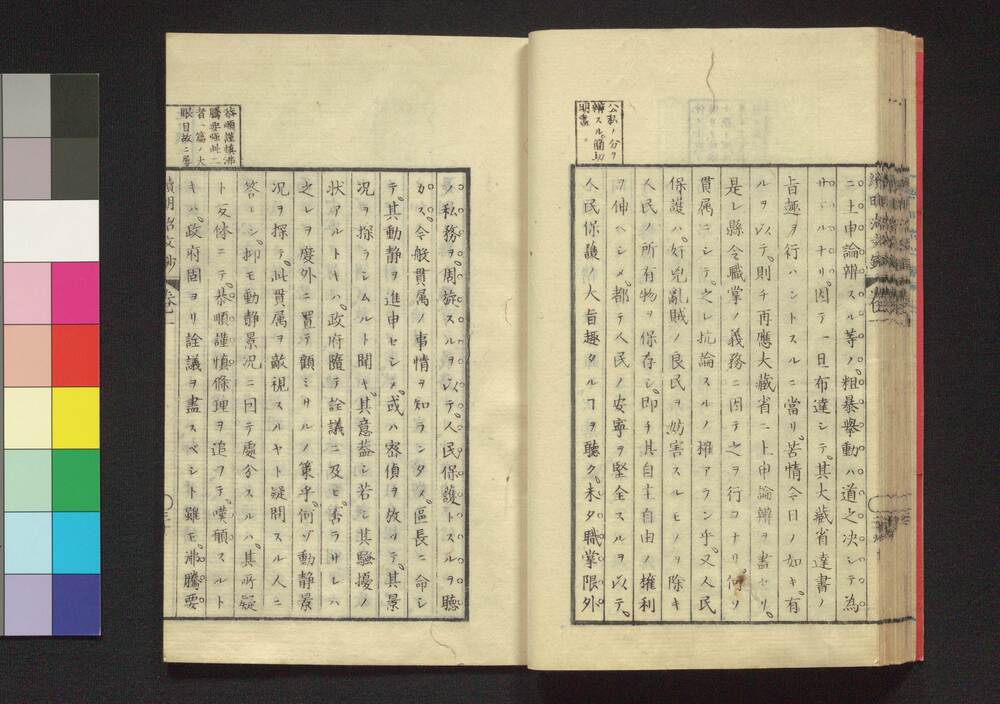 公私ノ分ヲ
辨スル簡切
明盡。
ニ上申論辨スル等ノ。粗暴擧動ハ道之决シテ為
サヾルナリ。因テ一旦布達シテ。其大藏省達書ノ
旨趣ヲ行ハントスルニ當リ。苦情今日ノ如キ有
ルヲ以テ。則チ再應大藏省ニ上申論辨ヲ盡セリ。
是レ縣令職掌ノ義務ニ因テ之ヲ行フナリ何ソ
貫属ニシテ。之レ抗論スルノ權アランヤ。又人民
保護ハ。奸兇亂賊ノ良民ヲ妨害スルモノヲ除キ
人民ノ所有物ヲ保存シ。即チ其自主自由ノ權利
ヲ伸ヘシメ。都テ人民ノ安寧ヲ堅全スルヲ以テ。
人民保護ノ大旨趣タルヿヲ聴ク。未タ職掌限外
ノ私務ヲ周旋スルヲ以テ。人民保護トスルヲ聴
カス。今般貫属ノ事情ヲ知ランタメ。區長ニ命シ
テ。其動静ヲ進申セシメ。或ハ密偵ヲ放ツテ。其景
況ヲ探ラシムルト聞キ。其意蓋シ若シ其騒擾ノ
状アルトキハ。政府隨テ詮議ニ及ヒ。否ラサレハ
之レヲ度外ニ置テ顧ミサルノ策乎。何ゾ動静景
况ヲ探テ。此貫属ヲ敵視スルヤト疑問スル人ニ
答ヘシ。抑モ動静景况ニ因テ處分スルハ。其所疑
ト反体ニテ。恭順謹慎條理ヲ追フテ。嘆願スルト
キハ。政府固ヨリ詮議ヲ盡スベシト雖モ。沸騰要
恭順謹慎沸
騰要强此二
者一篇ノ大
眼目故ニ